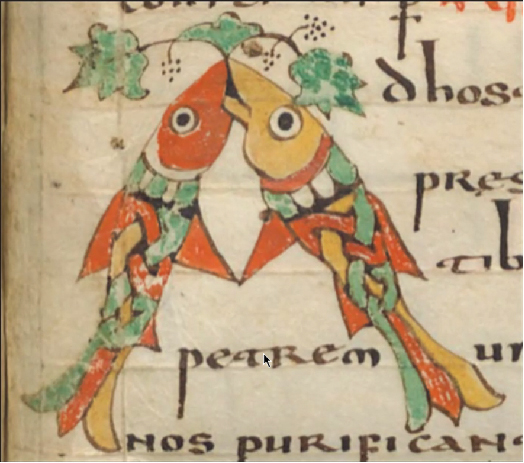 dhos
pres
tib
petrem un
nos purificans